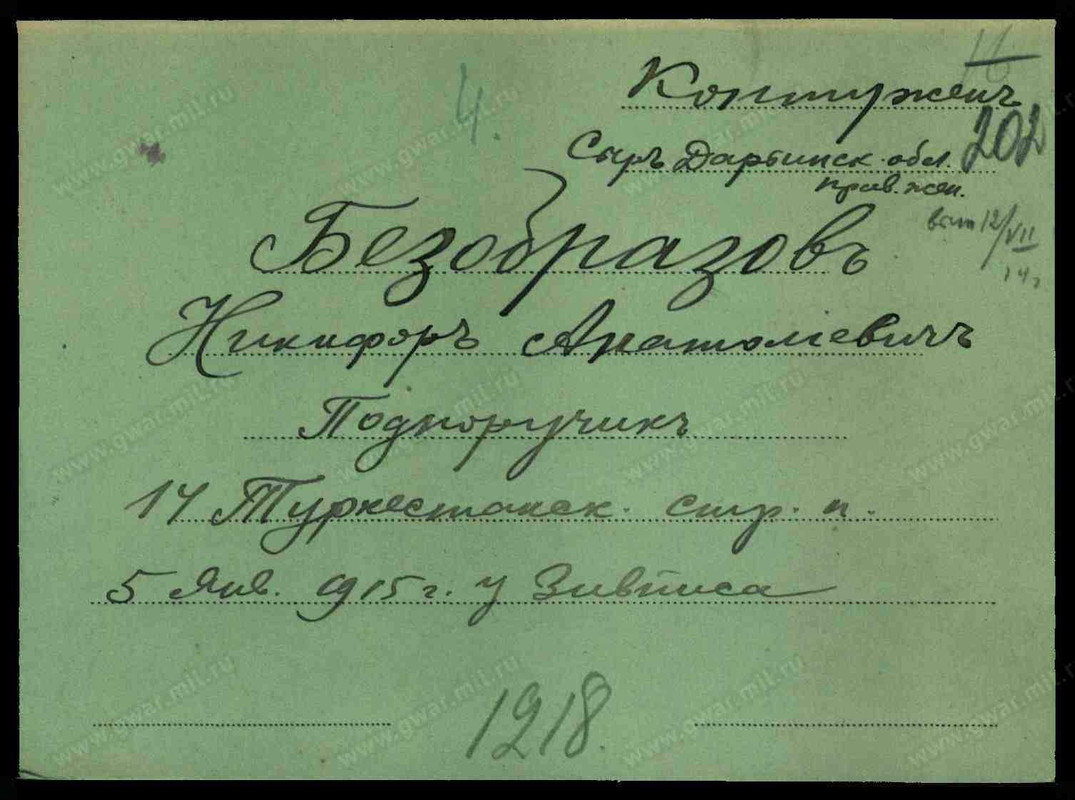 16
4.
Контужен
202
Сыръ Дарьинск. обл.
прав. жен.
12/VII
14 г
Безобразовъ
Никифоръ Анатолiевичъ
Подпоручикъ
14 Туркестанск. стр. п.
5 Янв. 1915 г. у Зивписа
1918.
www.gwar.mil.ru